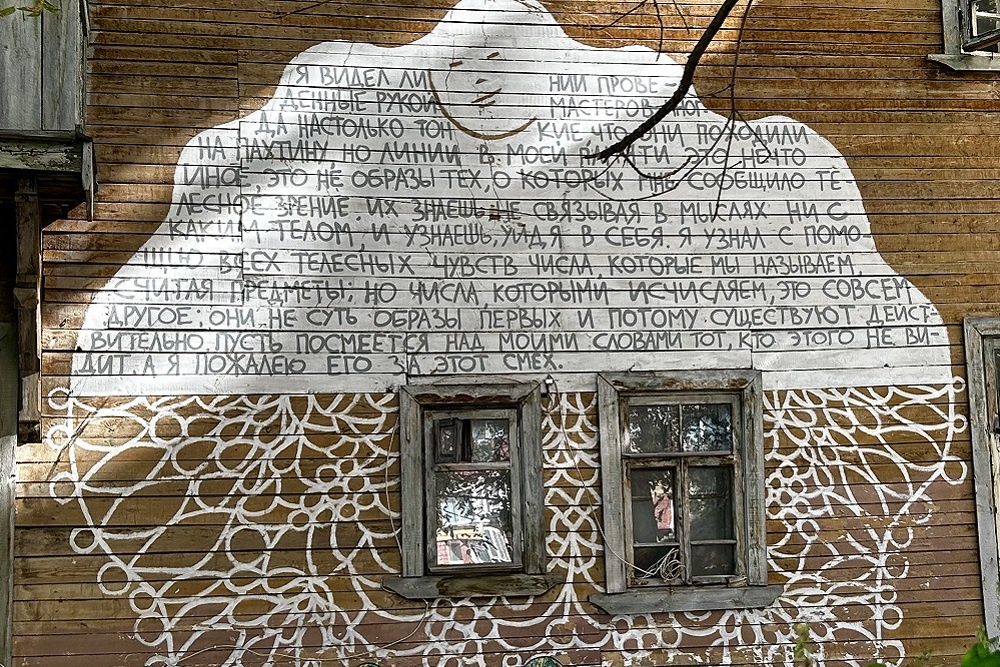 Я ВИДЕЛ ЛИ НИИ ПРОВЕ-
ДЕННЫЕ РУКОЙ МАСТЕРОВ ИНОГ
ДА НАСТОЛЬКО ТОН КИЕ, ЧТО ОНИ ПОХОДИЛИ
НА ПАХТИНУ, НО ЛИНИИ В МОЕЙ ПАМЯТИ ЭТО НЕЧТО
ИНОЕ, ЭТО НЕ ОБРАЗЫ ТЕХ, О КОТОРЫХ МНЕ СООБЩИЛО ТЕ
ЛЕСНОЕ ЗРЕНИЕ. ИХ ЗНАЕШЬ, НЕ СВЯЗЫВАЯ В МЫСЛЯХ НИ С
КАКИМ ТЕЛОМ, И УЗНАЕШЬ, УЙДЯ В СЕБЯ. Я УЗНАЛ С ПОМО
ЩЬЮ ВСЕХ ТЕЛЕСНЫХ ЧУВСТВ ЧИСЛА, КОТОРЫЕ МЫ НАЗЫВАЕМ,
СЧИТАЯ ПРЕДМЕТЫ; НО ЧИСЛА, КОТОРЫМИ ИСЧИСЛЯЕМ, ЭТО СОВСЕМ
ДРУГОЕ: ОНИ НЕ СУТЬ ОБРАЗЫ ПЕРВЫХ И ПОТОМУ СУЩЕСТВУЮТ ДЕЙСТ-
ВИТЕЛЬНО. ПУСТЬ ПОСМЕЕТСЯ НАД МОИМИ СЛОВАМИ ТОТ, КТО ЭТОГО НЕ ВИ-
ДИТ, А Я ПОЖАЛЕЮ ЕГО ЗА ЭТОТ СМЕХ.